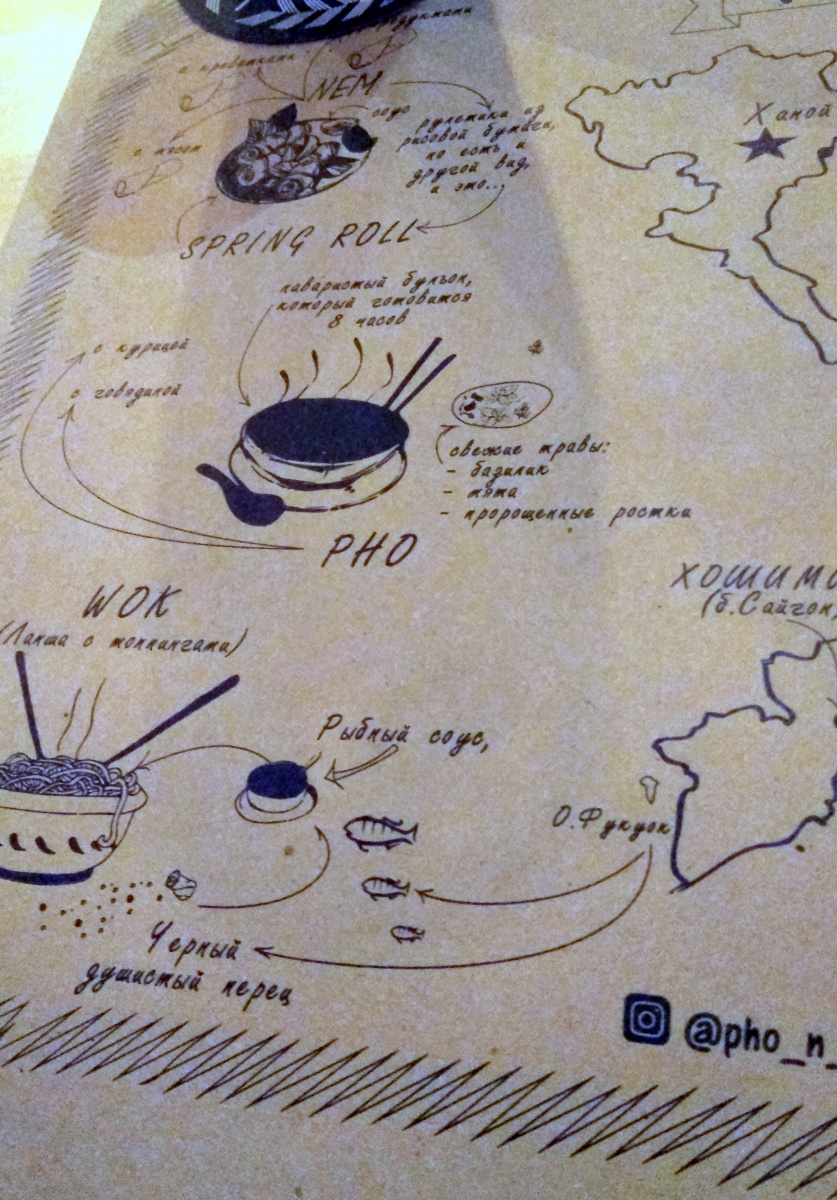 с креветками
NEM
соус
рулетики из
рисовой бумаги,
но есть и
другой вид,
и это...
с мясом
SPRING ROLL
Ханой
наваристый бульон,
который готовится
8 часов
с курицей
с говядиной
свежие травы:
- базилик
- мята
- пророщенные ростки
PHO
WOK
(Лапша с топпингами)
ХОШИМ
(б.Сайгон
Рыбный соус,
О.Фукуок
Черный
душистый перец
@pho_n_